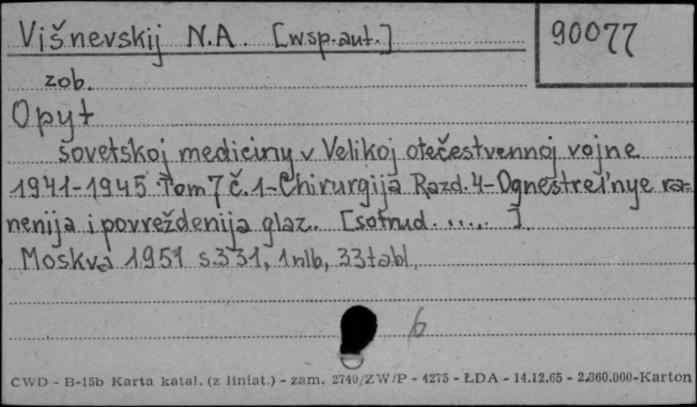 Višnevskij N.A. [wsp.aut.]
90077
zob.
Opyt
sovetskoj mediciny v Velikoj otečestvennoj vojne
1941-1945 Tom 7 č.1-Chirurgija Razd.4-Ognestrel'nye ra-
nenija i povreždenija glaz. [sotrud. .....]
Moskva 1951 s.331, 1nlb, 33tabl.
6
CWD - B-15b Karta katal. (z liniat.) - zam. 2740/ZW/P - 4275 - ŁDA - 14.12.65 - 2.360.000-Karton